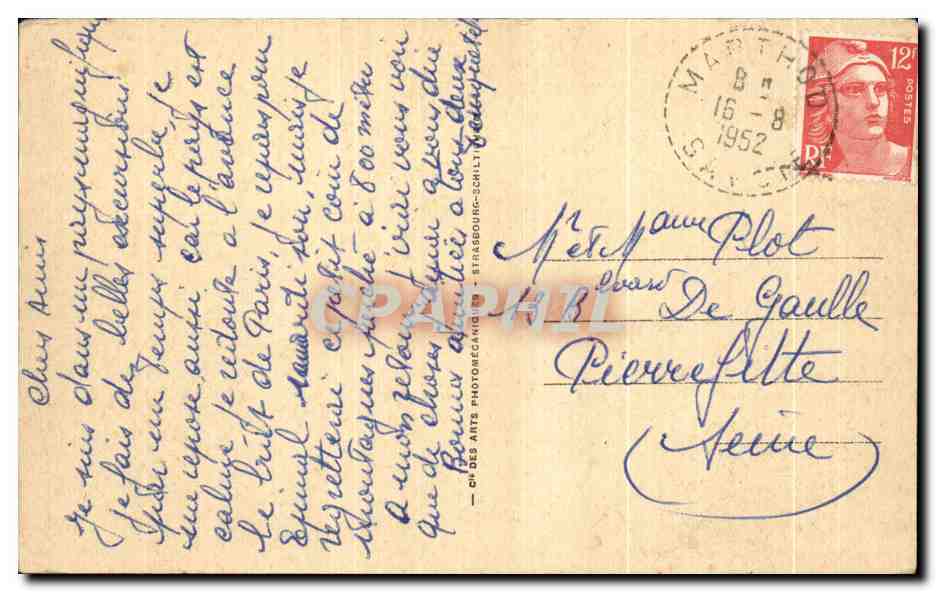 Chers Amis
Je suis dans un pays magnifique
je fais de belles excursions
par un temps superbe je
me repose aussi car le pays est
calme je redoute à l'avance
le bruit de Paris, je repars pour
Epinal samedi soir, mais je
regretterai ce petit coin de
montagnes perché à 800 mètres
à mon retour j'irai vous voir
que de choses j'aurai à vous dire
Bonne amitié à tous deux
— Cie DES ARTS PHOTOMÉCANIQUES STRASBOURG-SCHILTIGHEIM
8
16 - 8
1952
12F
POSTES
RF
Mr et Mame Plot
13 Bd
De Gaulle
Pierrefitte
Seine
CPARAMA